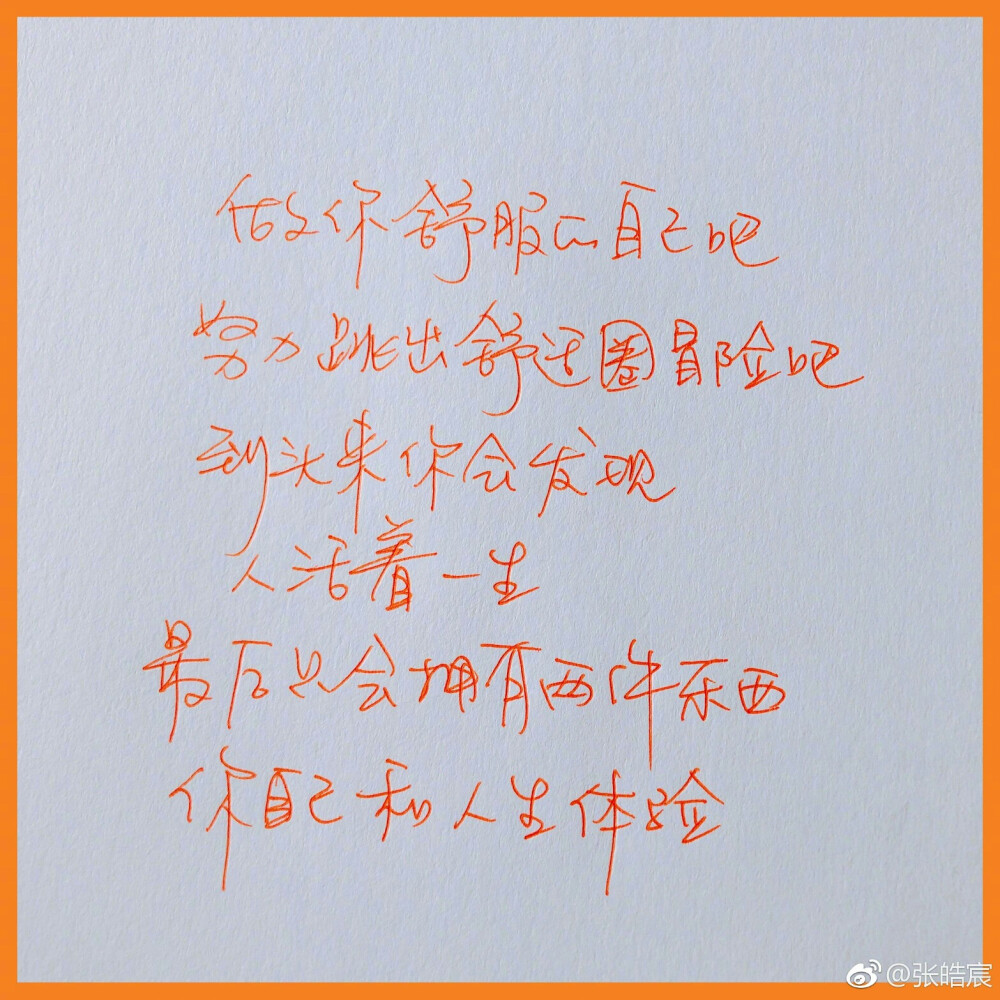 做你舒服的自己吧
努力跳出舒适圈冒险吧
到头来你会发现
人活着一生
最后只会拥有两件东西
你自己和人生体验
@张皓宸